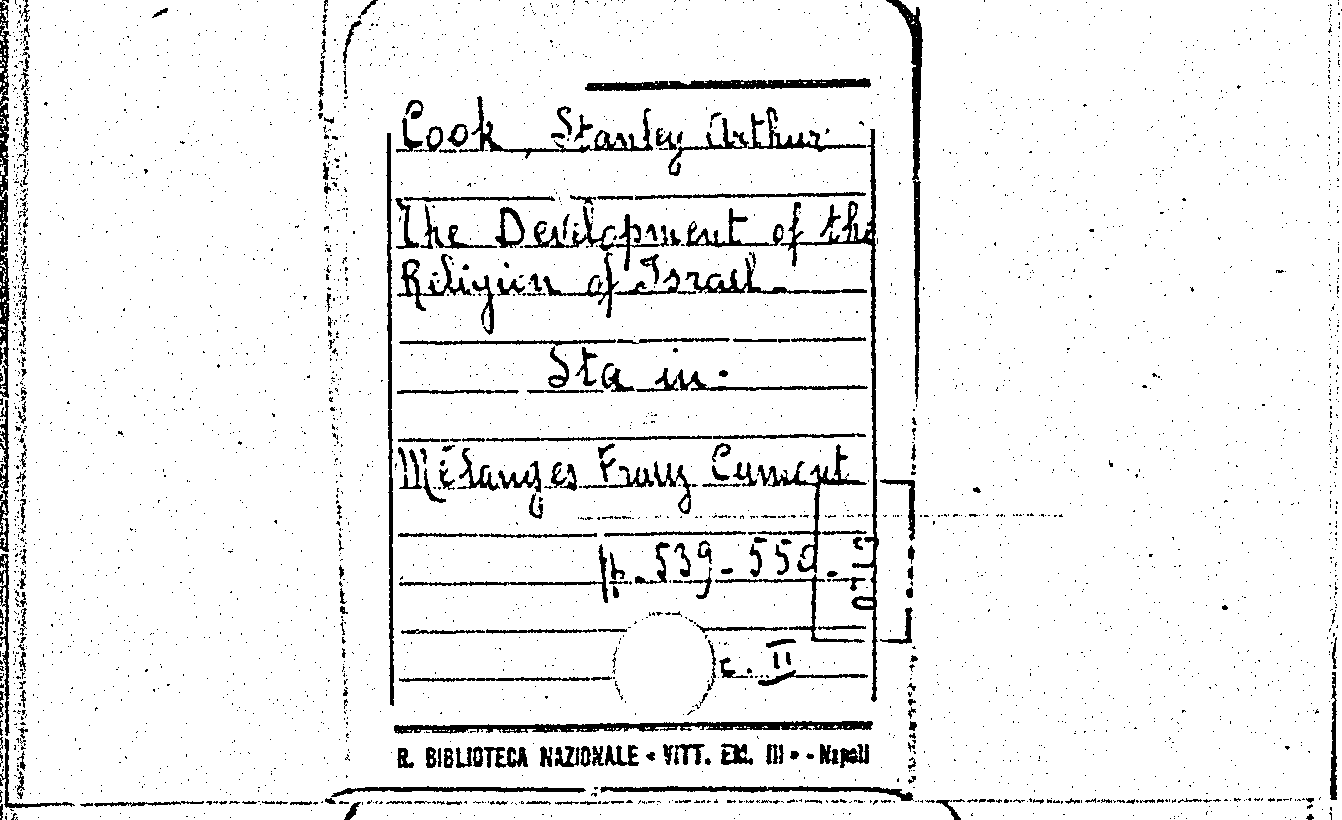 Cook, Stanley Arthur
The Development of the
Religion of Israel.
Sta in.
Mélanges Franz Cumont
p. 539-550.
c. II
R. BIBLIOTECA NAZIONALE « VITT. EM. III » - Napoli